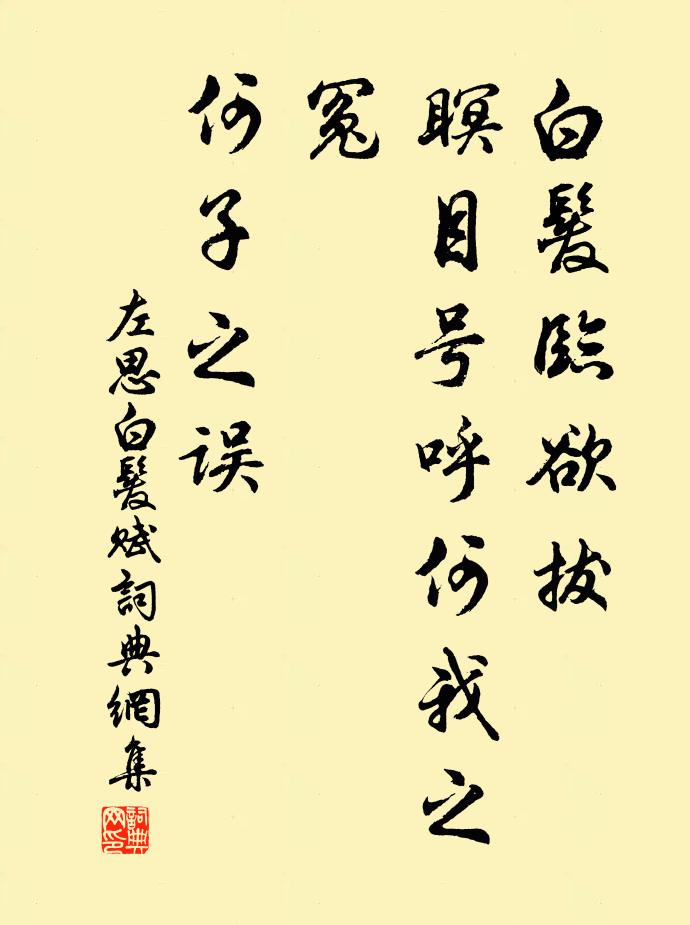 白髮臨欲拔
瞑目号呼何我之
冤
何子之误
左思白髮赋詞典網集
詞典网印